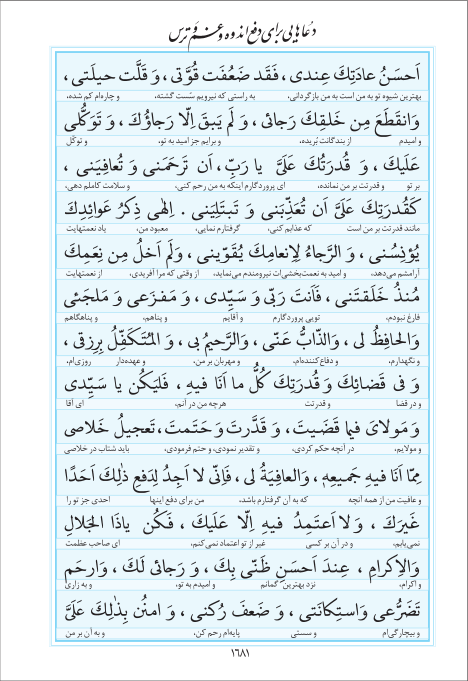 دعاهایی برای دفع اندوه و غم و ترس
اَحسَنُ عادَتِكَ عِندی ، فَقَد ضَعُفَت قُوَّتی ، وَ قَلَّت حیلَتی ،
بهترین شیوه تو به من است به من بازگردانی، به راستی که نیرویم سُست گشته، و چاره‌ام کم شده،
وَانقَطَعَ مِن خَلقِكَ رَجائی ، وَ لَم یَبقَ اِلّا رَجاؤُكَ ، وَ تَوَكُّلی
و امیدم از بندگانت بُریده، و برایم جز امید به تو، و توکّل
عَلَیكَ ، وَ قُدرَتُكَ عَلَیَّ یا رَبِّ، اَن تَرحَمَنی وَ تُعافِیَنی ،
بر تو و قدرتت بر من نمانده، ای پروردگارم اینکه به من رحم کنی، و سلامت کاملم دهی،
كَقُدرَتِكَ عَلَیَّ اَن تُعَذِّبَنی وَ تَبتَلِیَنی . اِلٰهی ذِكرُ عَوائِدِكَ
مانند قدرتت بر من است که عذابم کنی، گرفتارم نمایی، معبود من، یاد نعمتهایت
یُؤنِسُنی ، وَ الرَّجاءُ لِاِنعامِكَ یُقَوّینی ، وَلَم اَخلُ مِن نِعَمِكَ
آرامشم می‌دهد، و امید به نعمت‌بخشی‌ات نیرومندم می‌نماید، از وقتی که مرا آفریدی، از نعمتهایت
مُنذُ خَلَقتَنی ، فَاَنتَ رَبّی وَ سَیِّدی ، وَ مَفزَعی وَ مَلجَئی
فارغ نبودم، تویی پروردگارم و آقایم و پناهم، و پناهگاهم
وَالحافِظُ لی ، وَالذّابُّ عَنّی ، وَالرَّحیمُ بی ، وَ المُتَكَفِّلُ بِرِزقی ،
و نگهدارم، و دفاع‌کننده‌ام، و مهربان بر من، و عهده‌دار روزی‌ام،
وَ فی قَضائِكَ وَ قُدرَتِكَ كُلُّ ما اَنَا فیهِ ، فَلیَكُن یا سَیِّدی
و در قضا و قدرتت هرچه من در آنم، ای آقا
وَ مَولایَ فیما قَضَیتَ ، وَ قَدَّرتَ وَ حَتَمتَ، تَعجیلُ خَلاصی
و مولایم، در آنچه حکم کردی، و تقدیر نمودی، و حتم فرمودی، باید شتاب در خلاصی
مِمّا اَنَا فیهِ جَمیعِهِ، وَالعافِیَةُ لی ، فَاِنّی لا اَجِدُ لِدَفعِ ذٰلِكَ اَحَدًا
و عافیت من از همه آنچه که به آن گرفتارم باشد، من برای دفع اینها احدی جز تو را
غَیرَكَ ، وَ لا اَعتَمِدُ فیهِ اِلّا عَلَیكَ ، فَكُن یاذَا الجَلالِ
نمی‌یابم، و در آن بر کسی غیر از تو اعتماد نمی‌کنم، ای صاحب عظمت
وَالاِكرامِ ، عِندَ اَحسَنِ ظَنّی بِكَ ، وَ رَجائی لَكَ ، وَارحَم
و اکرام، نزد بهترین گمانم و امیدم به تو، و به زاری
تَضَرُّعی وَاستِكانَتی ، وَ ضَعفَ رُكنی ، وَ امنُن بِذٰلِكَ عَلَیَّ
و بیچارگی‌ام و سستی پایه‌ام رحم کن، و به آن بر من
۱۶۸۱